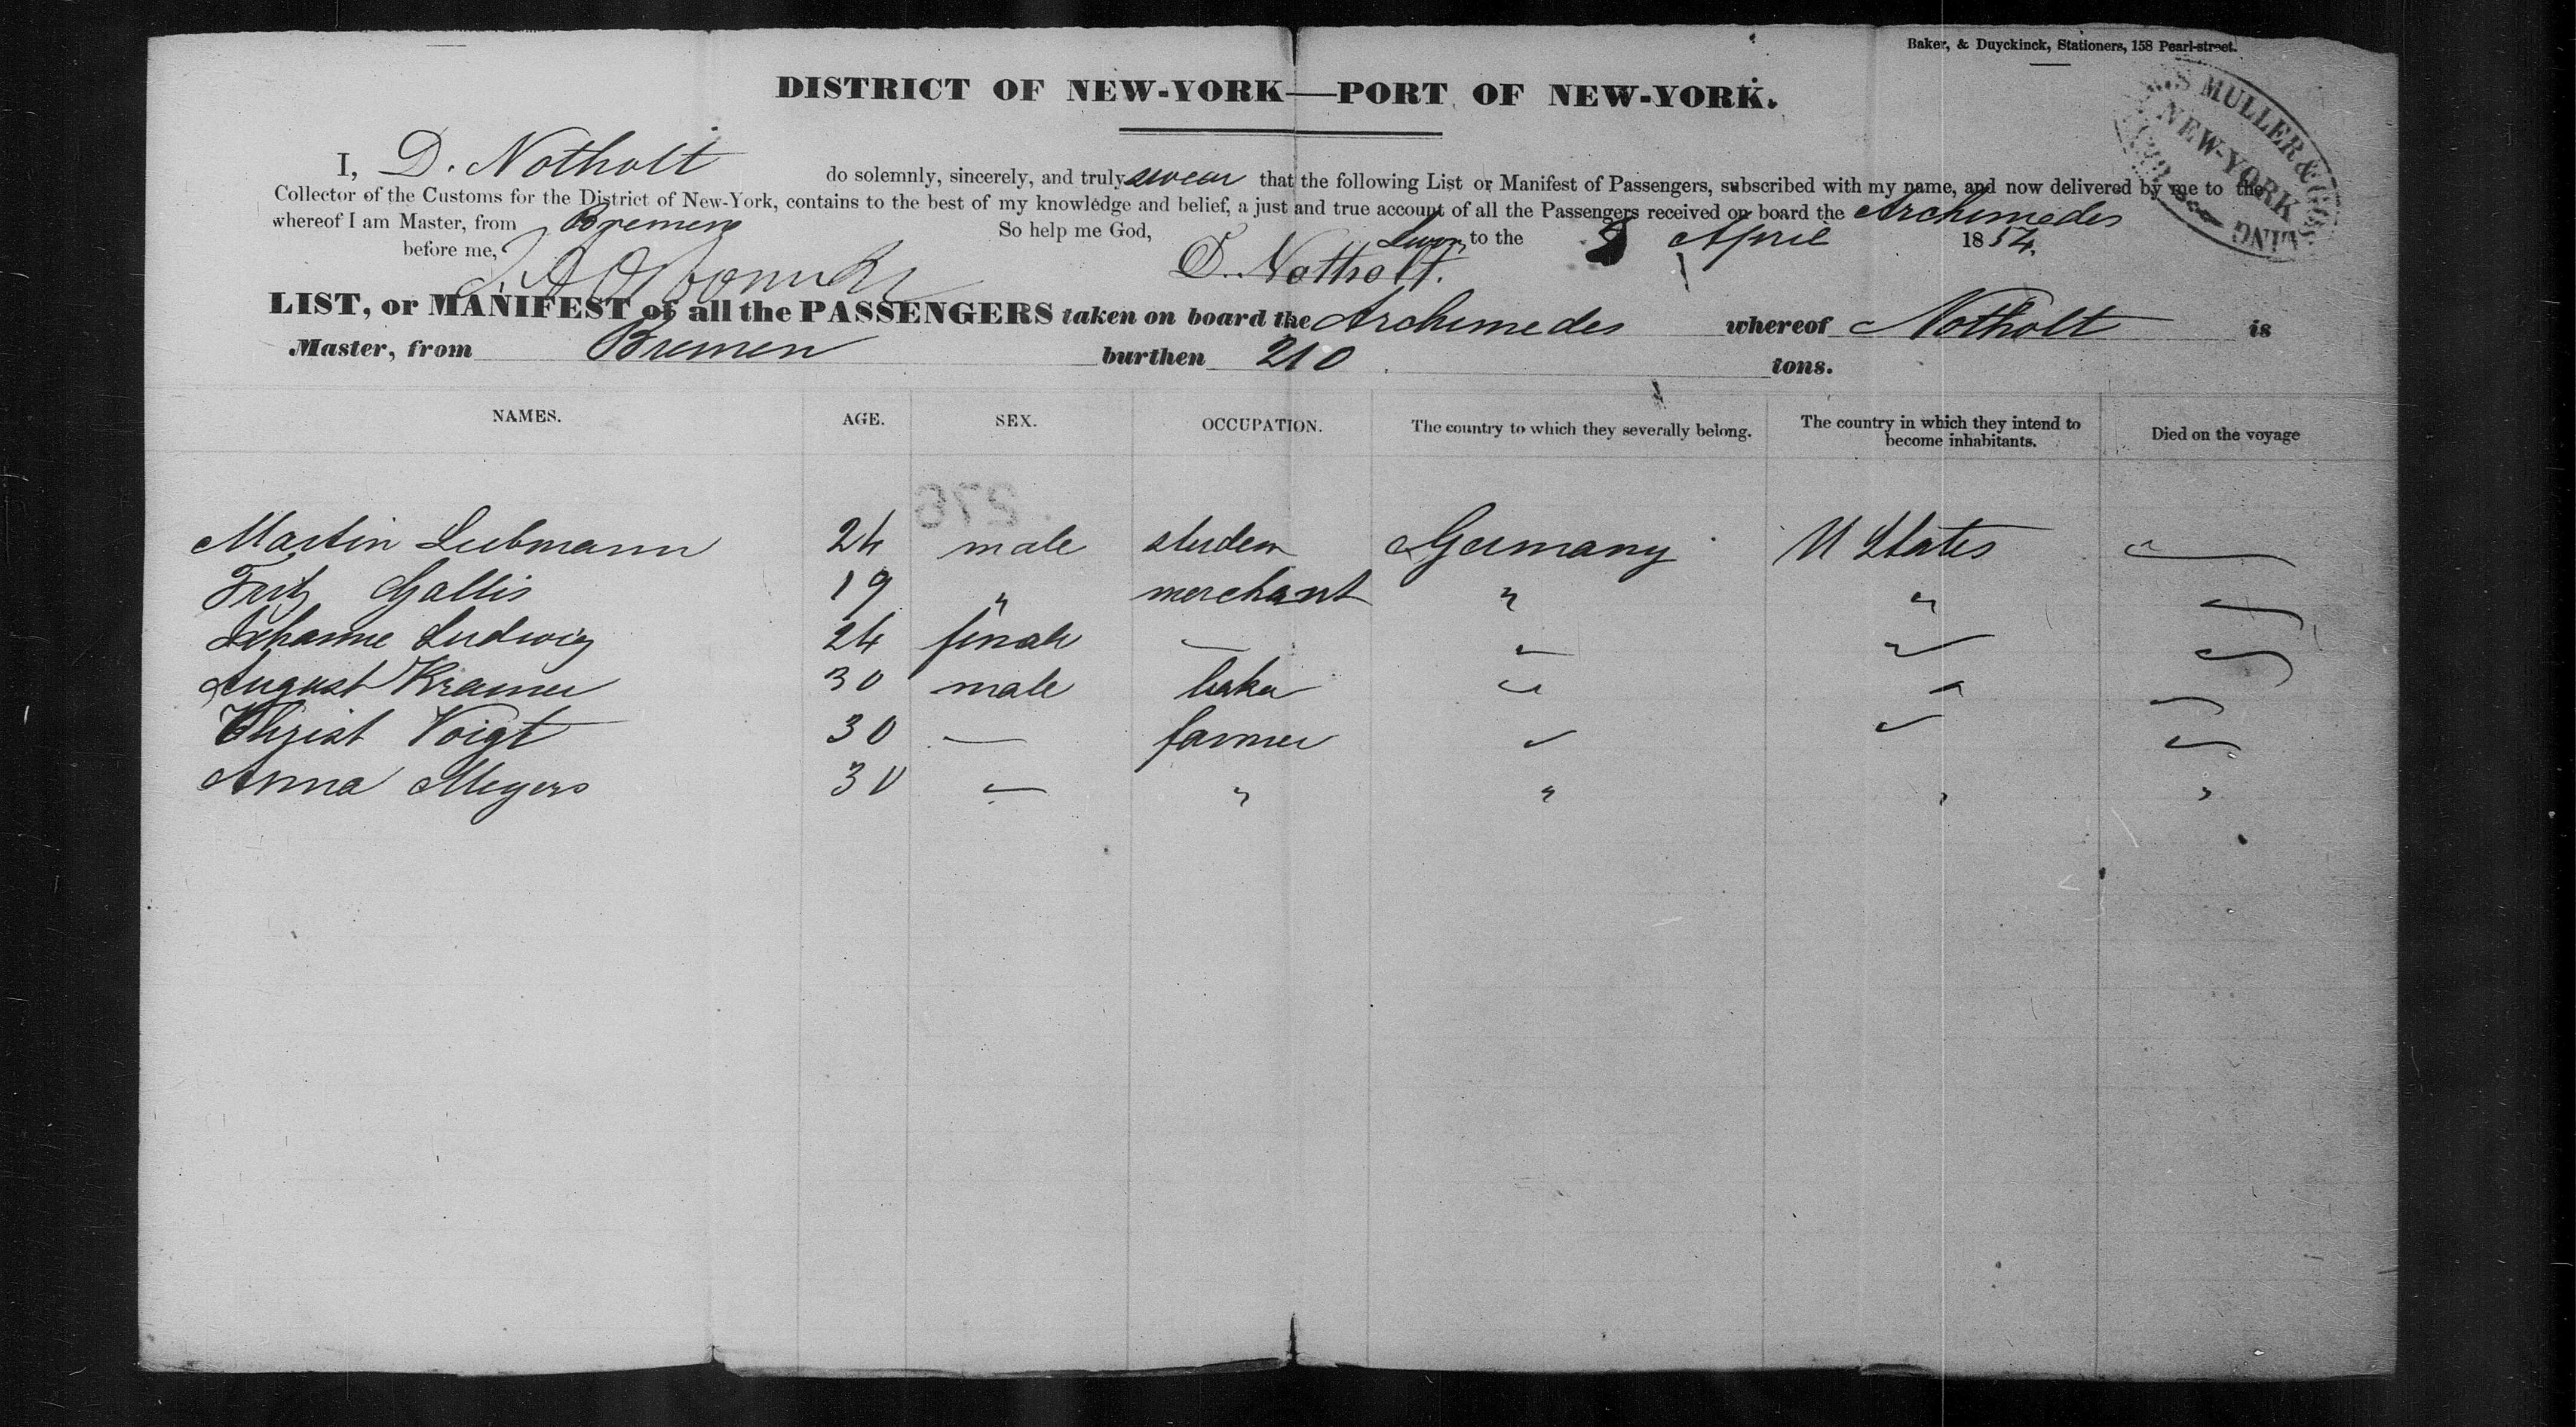 Baker, & Duyckinck, Stationers, 158 Pearl-street.
DISTRICT OF NEW-YORK—PORT OF NEW-YORK.
MULLER &
NEW-YORK
I, D. Notholt do solemnly, sincerely, and truly swear that the following List or Manifest of Passengers, subscribed with my name, and now delivered by me to the
Collector of the Customs for the District of New-York, contains to the best of my knowledge and belief, a just and true account of all the Passengers received on board the Archimedes
whereof I am Master, from Bremen So help me God,
to the 8 April 1854.
before me, D. Notholt.
LIST, or MANIFEST of all the PASSENGERS taken on board the Archimedes whereof Notholt is
Master, from Bremen burthen 210 tons.
NAMES. AGE. SEX. OCCUPATION. The country to which they severally belong. The country in which they intend to become inhabitants. Died on the voyage
276
Martin Liebmann 24 male studen Germany U States —
Fritz Gallis 19 " merchant " " —
Johanne Ludwig 24 female — " " —
August Kramer 30 male baker " " —
Christ Voigt 30 — farmer " " —
Anna Meyers 30 — " " " "